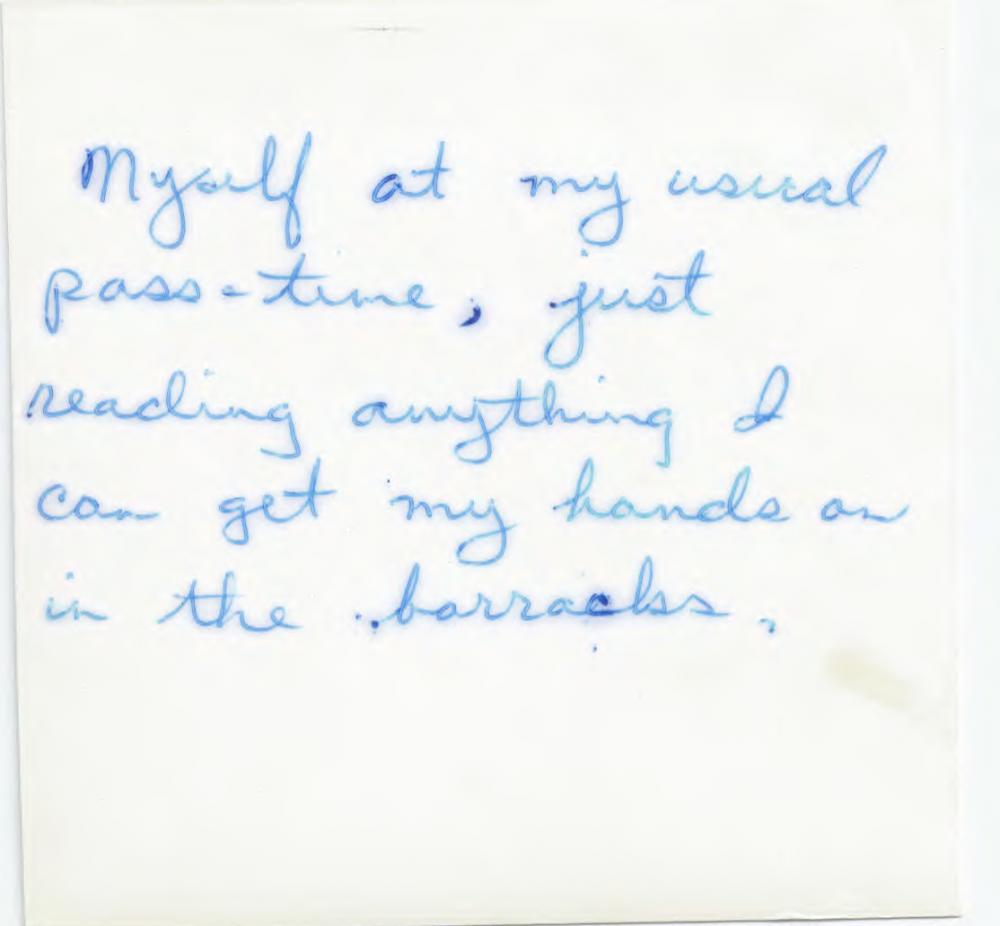 Myself at my usual
pass-time, just
reading anything I
can get my hands on
in the barracks.